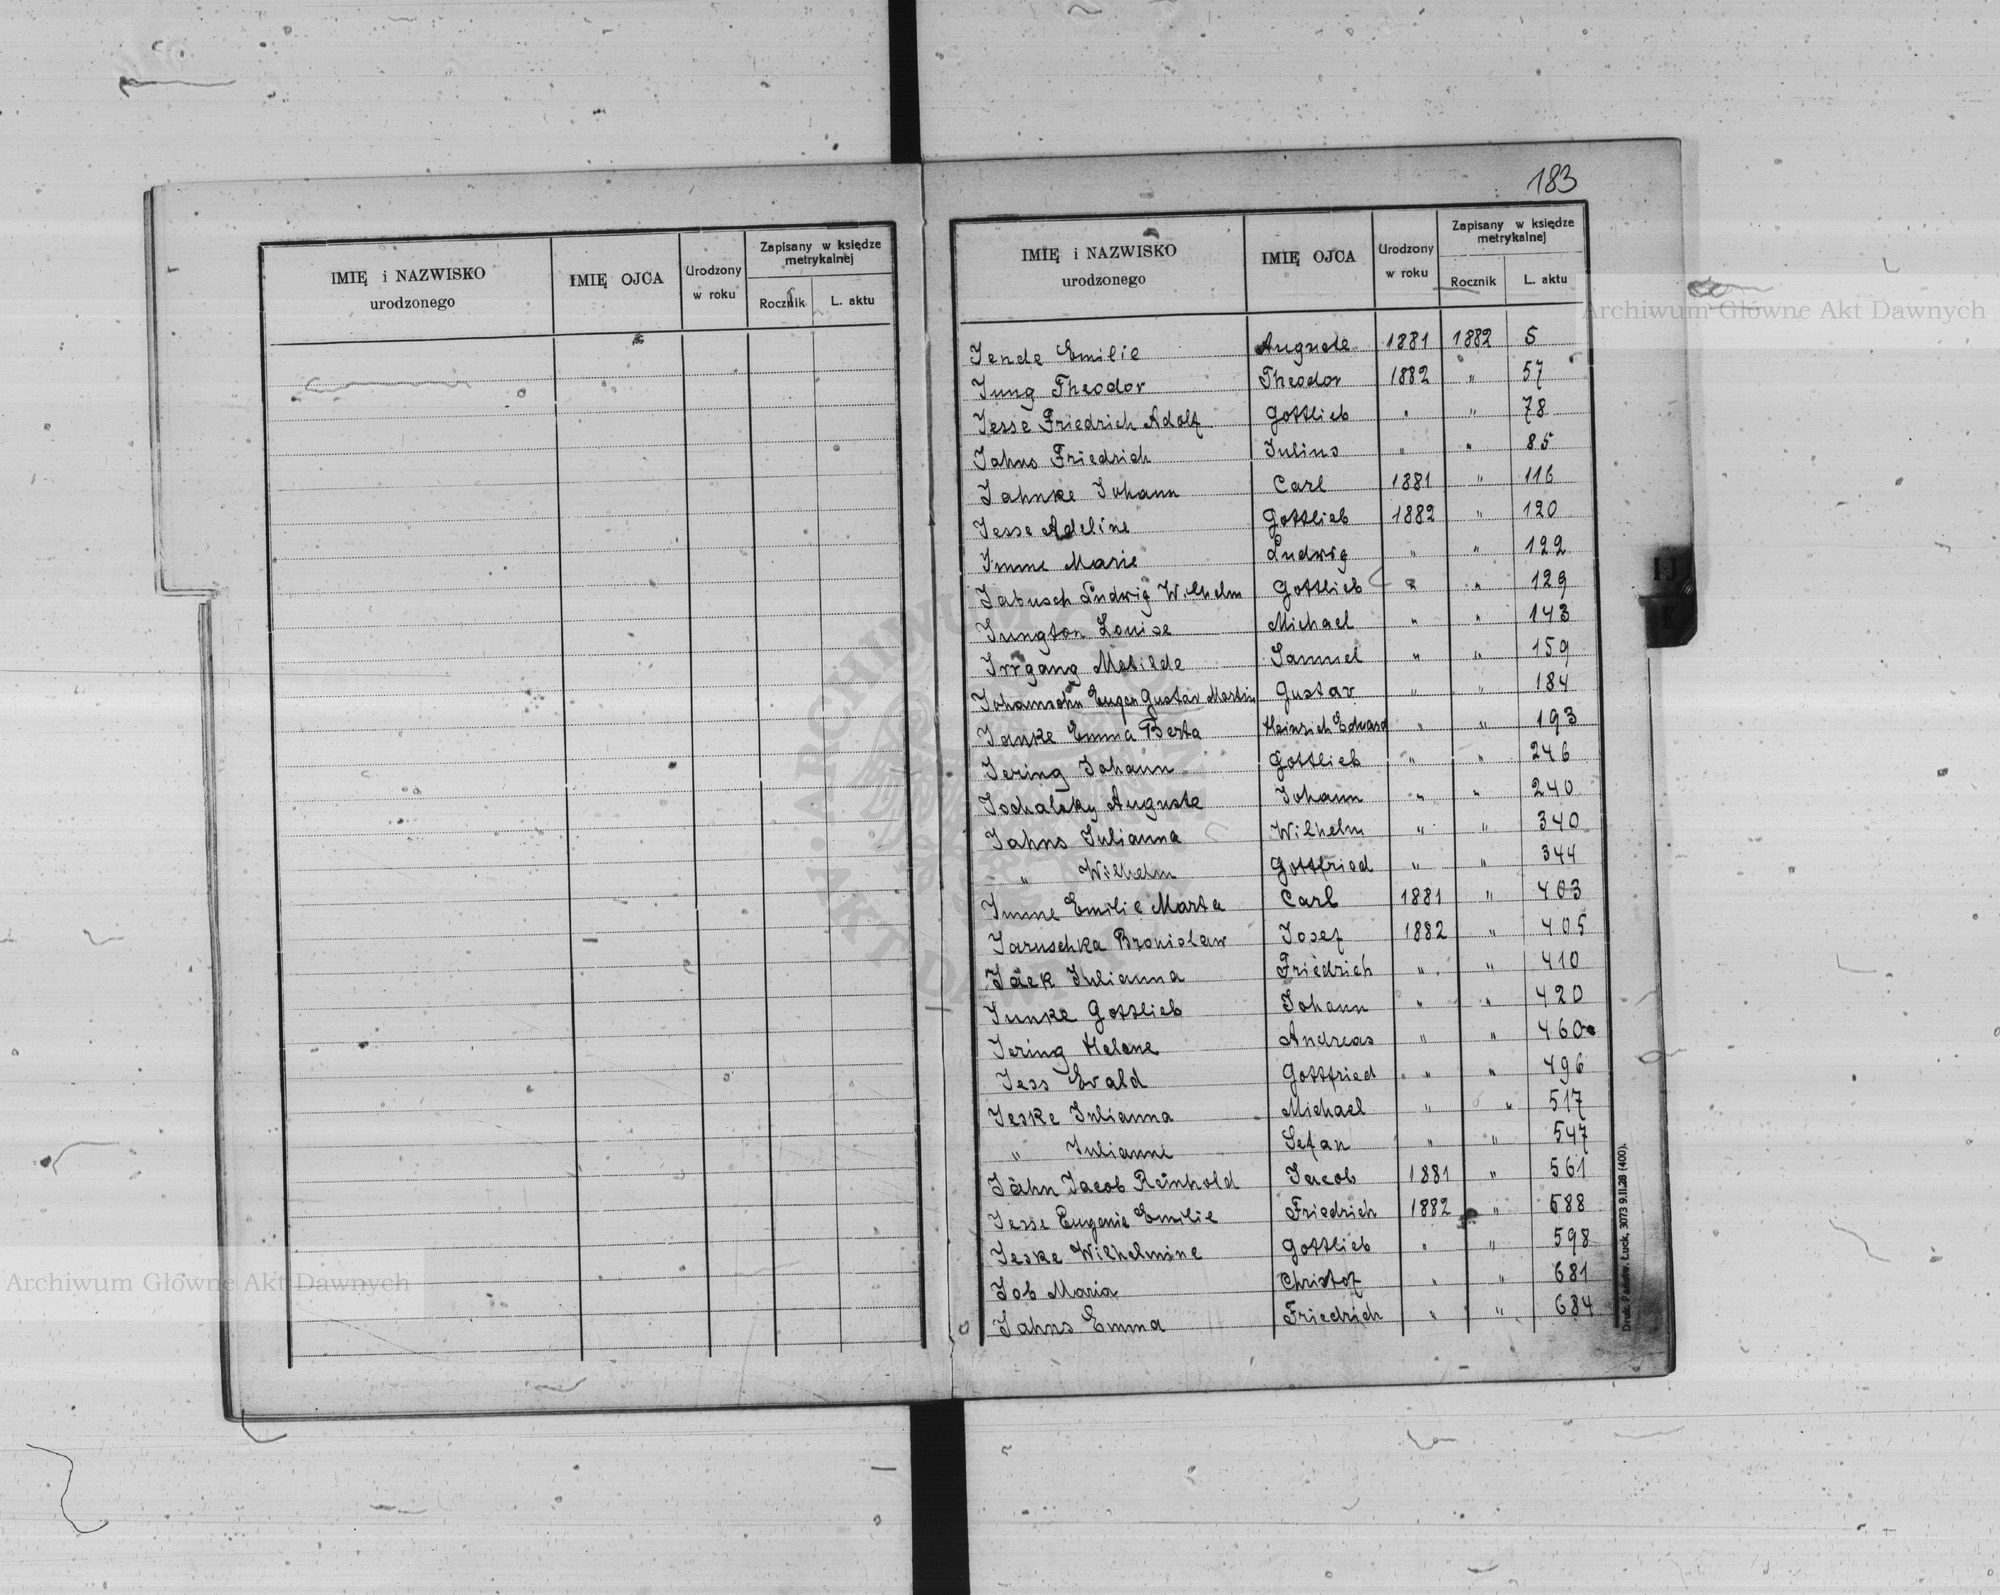 183
IMIĘ i NAZWISKO urodzonego IMIĘ OJCA Urodzony w roku Zapisany w księdze metrykalnej Rocznik L. aktu
IMIĘ i NAZWISKO urodzonego IMIĘ OJCA Urodzony w roku Zapisany w księdze metrykalnej Rocznik L. aktu
Jende Emilie Auguste 1881 1882 5
Jung Theodor Theodor 1882 " 57
Jesse Friedrich Adolf Gottlieb " " 78
Jahns Friedrich Julius " " 85
Jahnke Johann Carl 1881 " 116
Jesse Adeline Gottlieb 1882 " 120
Imme Marie Ludwig " " 122
Jabusch Ludwig Wilhelm Gottlieb " " 129
Jungton Louise Michael " " 143
Irrgang Matilde Samuel " " 159
Johannsohn Eugen Gustav Martin Gustav " " 184
Janke Emma Berta Heinrich Eduard " " 193
Jering Johann Gottlieb " " 246
Jochalsky Auguste Johann " " 240
Jahns Julianna Wilhelm " " 340
" Wilhelm Gottfried " " 344
Imme Emilie Marta Carl 1881 " 403
Jaruschka Bronislaw Josef 1882 " 405
Jäck Julianna Friedrich " " 410
Junke Gottlieb Johann " " 420
Jering Helene Andreas " " 460
Jess Evald Gottfried " " 496
Jeske Julianna Michael " " 517
" Julianne Sefan " " 547
Jähn Jacob Reinhold Jacob 1881 " 561
Jesse Eugenie Emilie Friedrich 1882 " 588
Jeske Wilhelmine Gottlieb " " 598
Job Maria Christof " " 681
Jahns Emma Friedrich " " 684
I J
K
Druk. Państw. Łuck, 3073 9.II.28 (400).
Archiwum Główne Akt Dawnych
Archiwum Główne Akt Dawnych